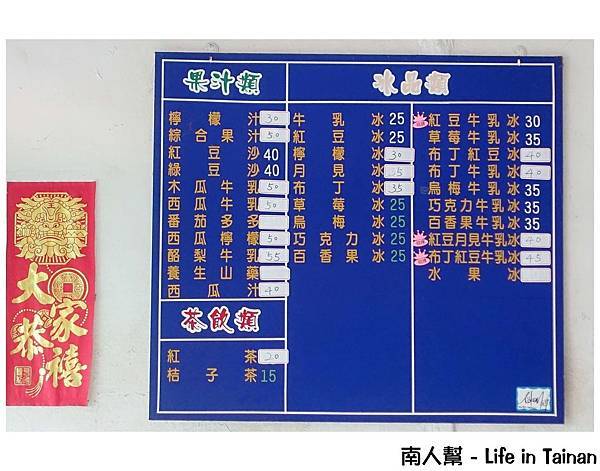 果汁類
檸檬汁 30
綜合果汁 50
紅豆沙 40
綠豆沙 40
木瓜牛乳 50
西瓜牛乳 50
番茄多多
西瓜檸檬 50
酪梨牛乳 55
養生山藥
西瓜汁 40
茶飲類
紅茶 20
桔子茶 15
冰品類
牛乳冰 25
紅豆冰 25
檸檬冰 30
月見冰
布丁冰 35
草莓冰 25
烏梅冰 25
巧克力冰 25
百香果冰 25
紅豆牛乳冰 30
草莓牛乳冰 35
布丁紅豆冰 40
布丁牛乳冰 40
烏梅牛乳冰 35
巧克力牛乳冰 35
百香果牛乳冰 35
紅豆月見牛乳冰 40
布丁紅豆牛乳冰 45
水果冰
大家恭禧
南人幫 - Life in Tainan